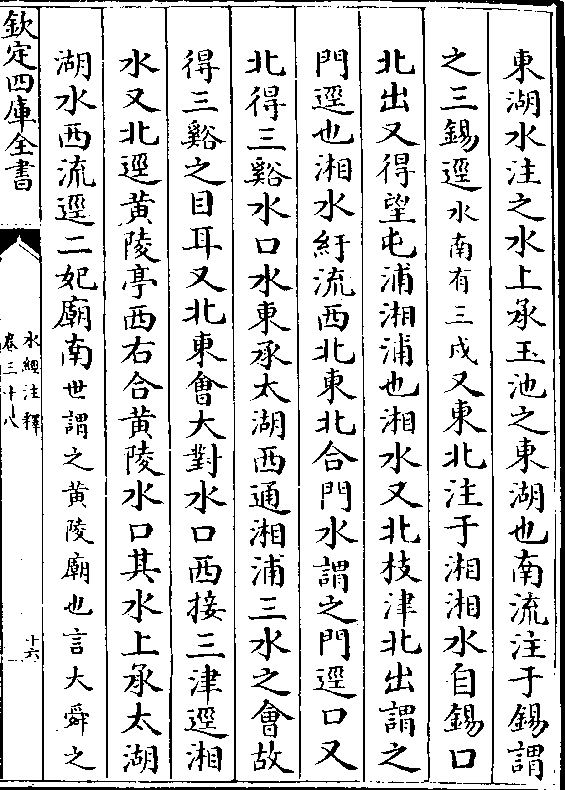 東湖水注之水上承玉池之東湖也南流注于錫謂
之三錫逕水南有三戍又東北注于湘湘水自錫口
北出又得望屯浦湘浦也湘水又北枝津北出謂之
門逕也湘水紆流西北東北合門水謂之門逕口又
北得三谿水口水東承太湖西通湘浦三水之會故
得三谿之目耳又北東會大對水口西接三津逕湘
水又北逕黄陵亭西右合黄陵水口其水上承太湖
湖水西流逕二妃廟南世謂之黄陵廟也言大舜之
欽定四庫全書
水經注釋
卷三十八
十六